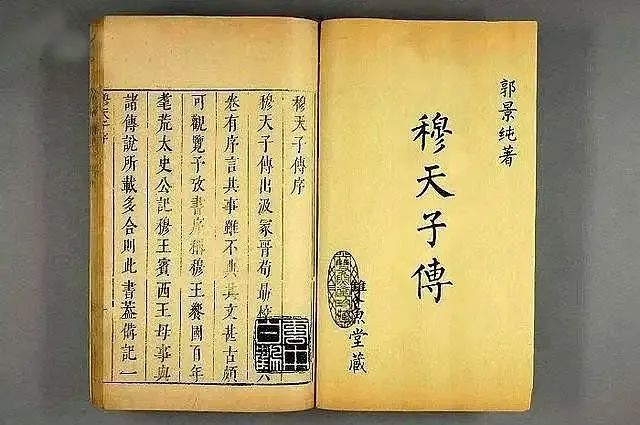 郭景純著
穆天子傳
雙魚堂藏
穆天子傳序
穆天子傳出汲冢晉荀勗校六
卷有序言其事雖不典其文甚古頗
可觀覽予攷書序稱穆王饗國百年
耄荒太史公記穆王賓西王母事與
諸傳說所載多合則此書蓋備記一